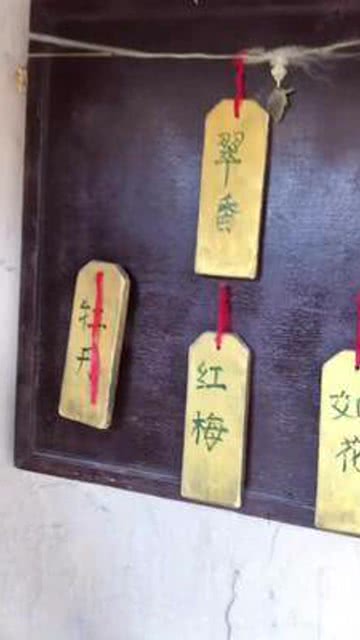 翠香
牡丹
红梅
如花